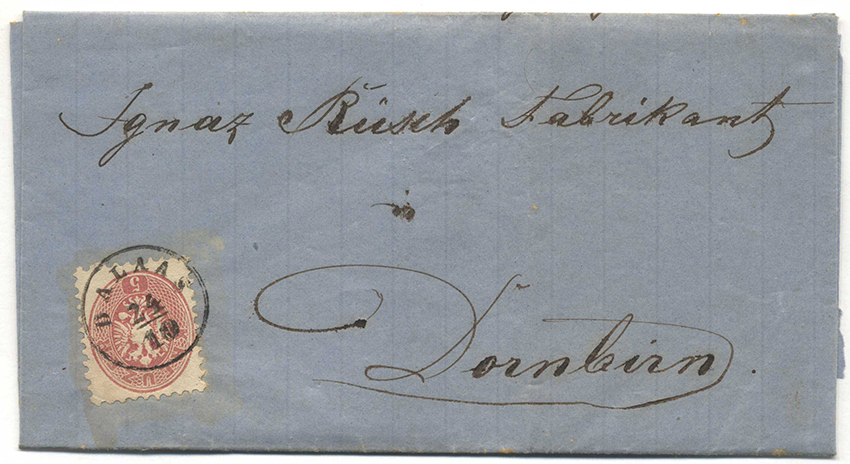 Ignaz Rüsch Fabrikant
in
Dornbirn.
5
DALAAS
24
10